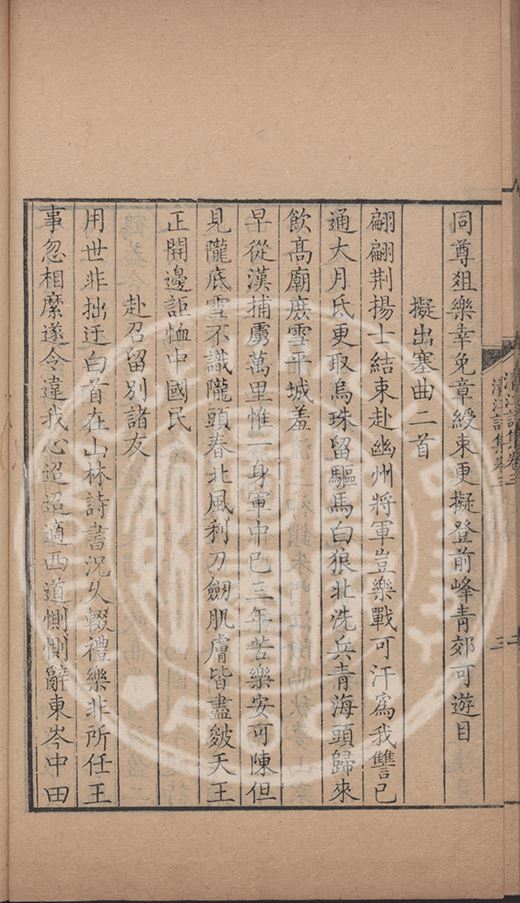 同尊俎樂幸免章綬束更擬登前峰青郊可遊目
擬出塞曲二首
翩翩荆揚士結束赴幽州將軍豈樂戰可汗爲我讐已
通大月氐更取烏珠留驅馬白狼北洗兵青海頭歸來
飲高廟庶雪平城羞
早從漢捕虜萬里惟一身軍中已三年苦樂安可陳但
見隴底雪不識隴頭春北風利刀劒肌膚皆盡皴天王
正開邊詎恤中國民
赴召留别諸友
用世非拙迂白首在山林詩書況久輟禮樂非所任王
事忽相縻遂令違我心迢迢適西道惻惻辭東岑中田
清江詩集卷三
三